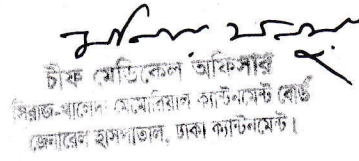 চীফ মেডিকেল অফিসার
সিরাজ-খালেদা মেমোরিয়াল ক্যান্টনমেন্ট বোর্ড
জেনারেল হাসপাতাল, ঢাকা ক্যান্টনমেন্ট।